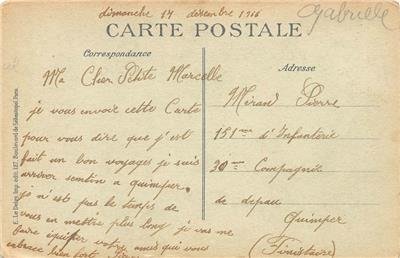 dimanche 17 décembre 1916
Gabrielle
CARTE POSTALE
Correspondance
Adresse
Ma Cher Petite Marcelle
je vous envoie cette Carte
pour vous dire que j'est
fait un bon voyages je suis
arriver
a quimper.
je n'est pas le temps de
vous en mettre plus long je vas me
faire équiper votre amis qui vous
embrace bien fort
Miran Pierre
151ème d'Infanterie
30ème Compagnie
de depau
Quimper
(Finistaire)
E. Le Deley, Imp.-édit. 127, Boulevard de Sébastopol, Paris.